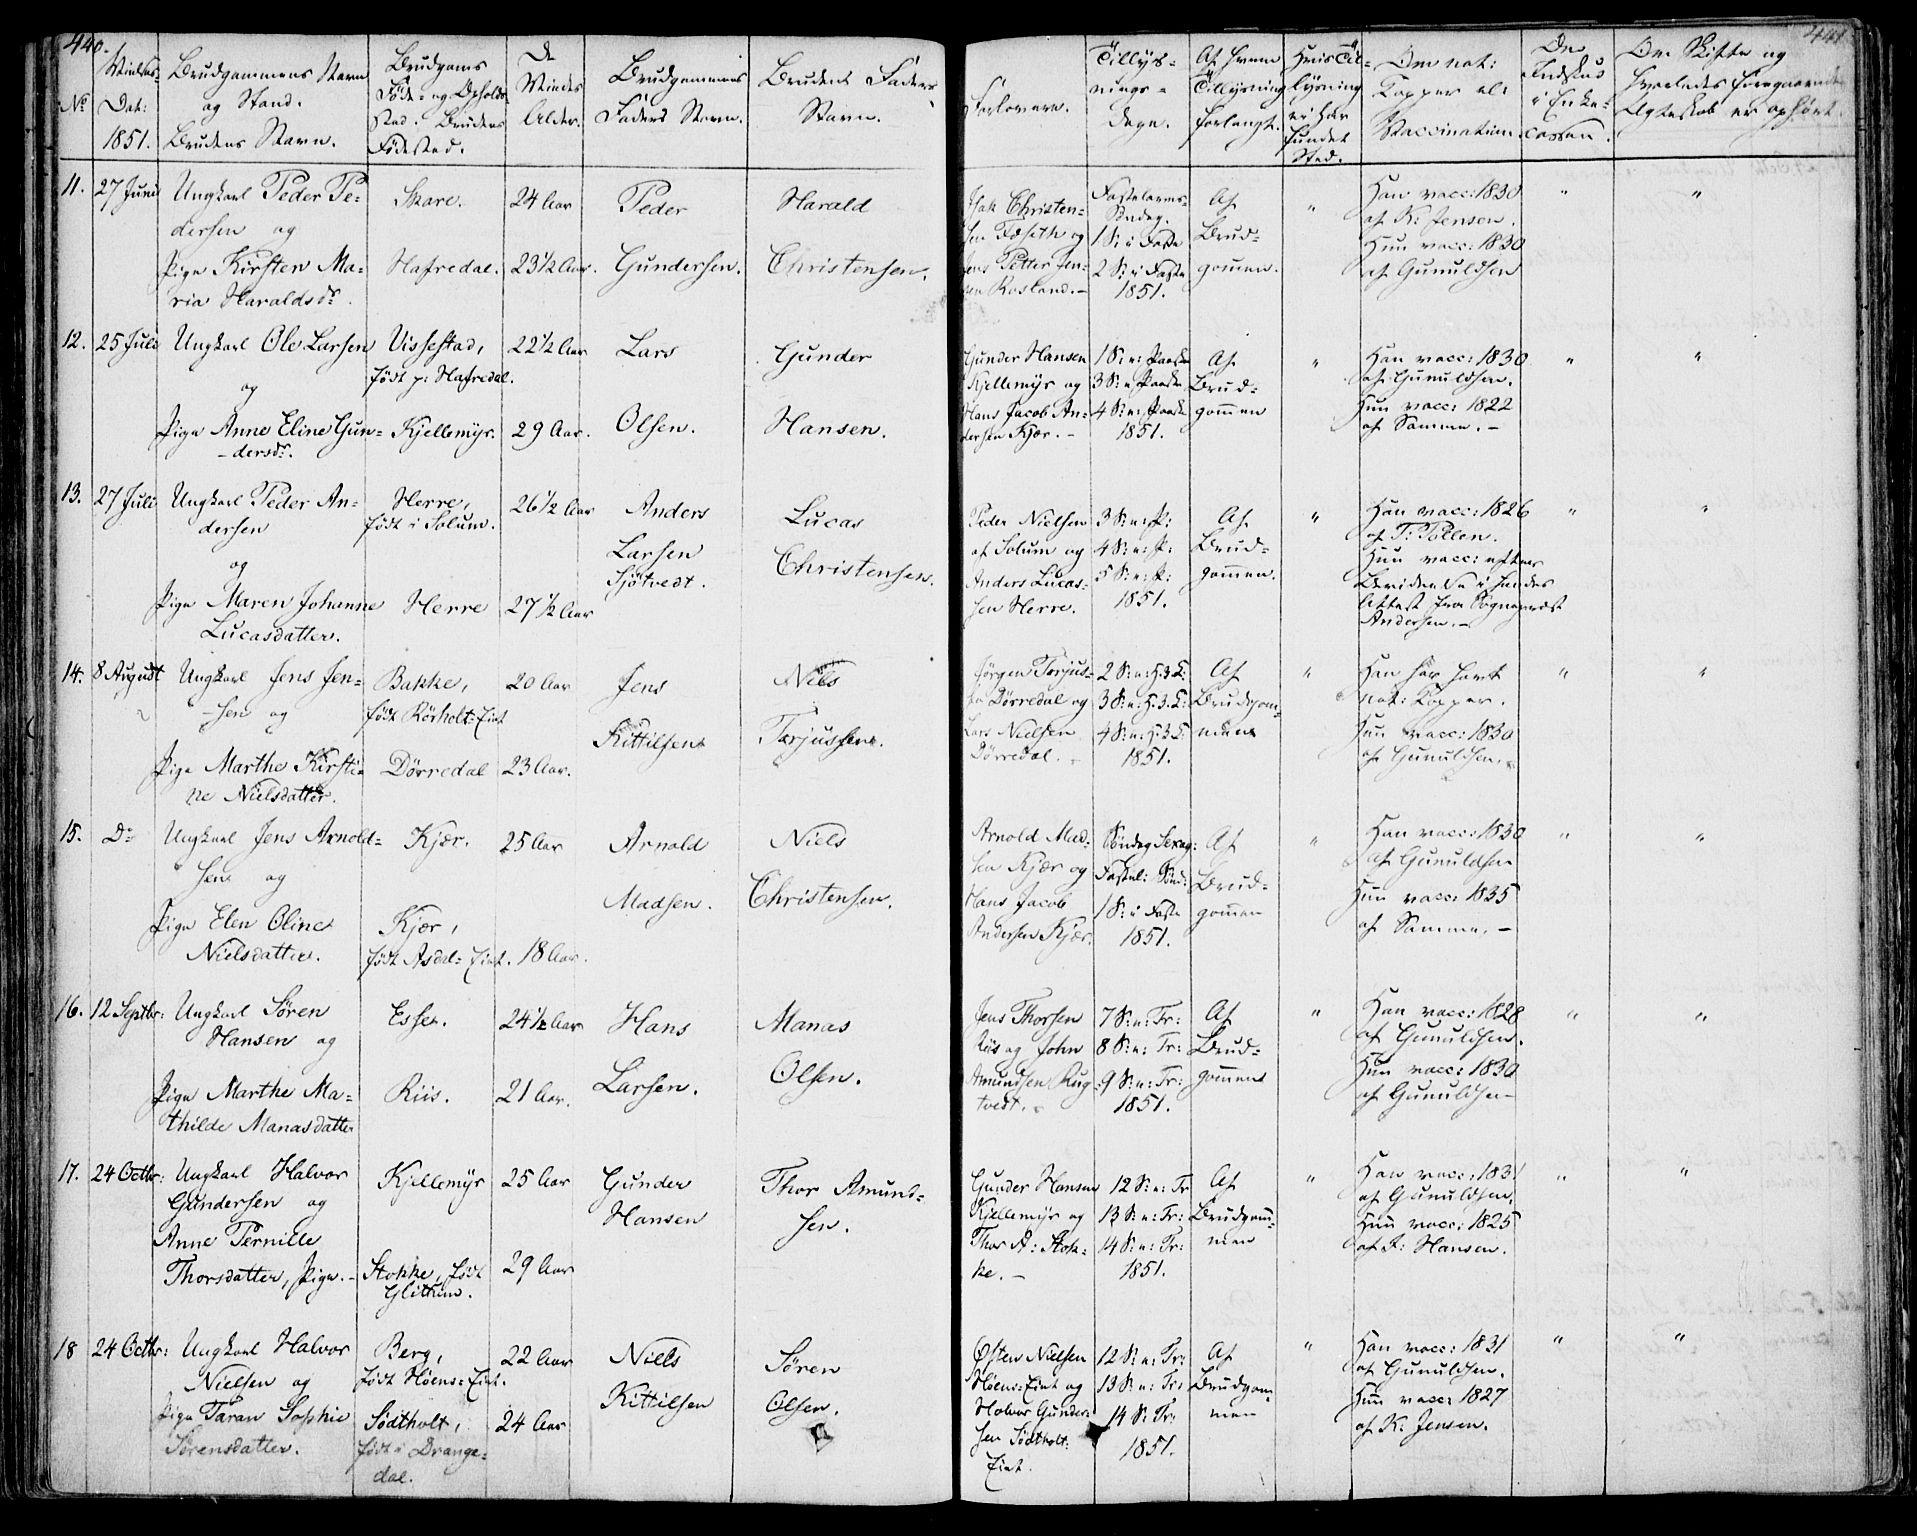 440.
441
No
Vielses-
Dat:
1851.
Brudgommens Navn
og Stand.
Brudens Navn.
Brudgoms
Føde- og Opholds
sted. Brudens
Fødested.
De
Viedes
Alder.
Brudgommens
Faders Navn.
Brudens Faders
Navn.
Forlovere.
Tillys-
nings-
dage.
Af hvem
Tillysning
forlangt.
Hvis Til-
lysning
ei har
fundet
Sted.
Om nat:
Kopper el:
Vaccination.
Om
Indskud
i Enke-
cassen.
Om Skifte og
hvorledes foregaaende
Ægteskab er ophørt.
11. 27 Juni Ungkarl Peder Pe-
dersen og
Pige Kirsten Ma-
ria Haraldsdr.
Skare.
Hafredal.
24 Aar
23 1/2 Aar.
Peder
Gundersen.
Harald
Christensen.
Isak Christen-
sen Foseth og
Jens Petter Jen-
sen Rosland.-
Fastelavns-
Søndag.
1 S: i Faste
2 S: i Faste
1851.
Af
Brud-
gommen.
"
Han vacc: 1830
af K: Jensen.
Hun vacc: 1830
af Gunuldsen
"
"
12. 25 Juli Ungkarl Ole Larsen
og
Pige Anne Eline Gun-
-dersdr.
Vissestad,
født p: Hafredal.
Kjellemyr.
22 1/2 Aar
29 Aar.
Lars
Olsen.
Gunder
Hansen.
Gunder Hansen
Kjellemyr og
Hans Jacob An-
dersen Kjær.-
1 S: e: Paaske
3 S: e: Paaske
4 S: e: Paaske
1851.
Af
Brud-
gommen
"
Han vacc: 1830
af Gunuldsen.
Hun vacc: 1822
af Samme.-
"
"
13. 27 Juli Ungkarl Peder An-
dersen
og
Pige Maren Johanne
Lucasdatter.
Herre,
født i Solum.
Herre
26 1/2 Aar
27 1/2 Aar
Anders
Larsen
Sjøtvedt.
Lucas
Christensen.
Peder Nielsen
af Solum og
Anders Lucas-
sen Herre.
3 S: e: P:
4 S: e: P:
5 S: e: P:
1851.
Af
Brud-
gommen.
"
Han vacc: 1826
af T: Pollen.
Hun vacc: efter
Beviidelse i hendes
Attest fra Sognepræst
Andersen.-
"
"
14. 8 August Ungkarl Jens Jen-
-sen og
Pige Marthe Kirsti-
ne Nielsdatter.
Bakke,
født Rörholt-Eiet
Dörredal
20 Aar
23 Aar.
Jens
Kittilsen
Niels
Tarjussen.
Jørgen Tarjus-
sen Dörredal og
Lars Nielsen
Dörredal.-
2 S: e: H. 3. K:
3 S: e: H. 3. K:
4 S: e: H. 3. K:
1851.
Af
Brudgom-
men
"
Han har havt
nat: Kopper.
Hun vacc: 1830
af Gunuldsen.-
"
"
15. Do Ungkarl Jens Arnold-
sen og
Pige Elen Oline
Nielsdatter.
Kjær.
Kjær,
født Asdal-Eiet.
25 Aar
18 Aar.
Arnold
Madsen.
Niels
Christensen.
Arnold Mad-
sen Kjær og
Hans Jacob
Andersen Kjær.
Søndag Sexag:
Fastel: Sønd:
1 S: i Faste
1851.
Af
Brud-
gommen
"
Han vacc: 1830
af Gunuldsen
Hun vacc: 1835
af Samme.-
"
"
16. 12 Septbr: Ungkarl Søren
Hansen og
Pige Marthe Ma-
thilde Manasdatter
Esse.
Riis.
24 1/2 Aar
21 Aar.
Hans
Larsen.
Manas
Olsen.
Jens Thorsen
Riis og John
Amundsen Rug-
tvedt.-
7 S: e: Tr:
8 S: e: Tr:
9 S: e: Tr:
1851.
Af
Brud-
gommen
"
Han vacc: 1828
af Gunuldsen.
Hun vacc: 1830
af Gunuldsen-
"
"
17. 24 Octbr: Ungkarl Halvor
Gundersen og
Anne Pernille
Thorsdatter, Pige.-
Kjellemyr
Stokke, født
Glittum.
25 Aar
29 Aar
Gunder
Hansen
Thor Amund-
sen.
Gunder Hansen
Kjellemyr og
Thor A: Stok-
ke.-
12 S: e: Tr
13 S: e: Tr:
14 S: e: Tr:
1851.
Af
Brudgom-
men
"
Han vacc: 1831
af Gunuldsen.
Hun vacc: 1825
af P: Hansen.
"
"
18 24 Octbr: Ungkarl Halvor
Nielsen og
Pige Taran Sophie
Sørensdatter.
Berg,
født Høens-Eiet.
Södtholt,
født i Drange-
dal.
22 Aar
24 Aar
Niels
Kittilsen
Søren
Olsen.
Østen Nielsen
Høens-Eiet og
Halvor Gunder-
sen Södtholt:
Eiet.
12 S: e: Tr:
13 S: e: Tr:
14 S: Tr:
1851.
Af
Brudgom-
men
"
Han vacc: 1831
af Gunuldsen.
Hun vacc: 1827
af K: Jensen.
"
"